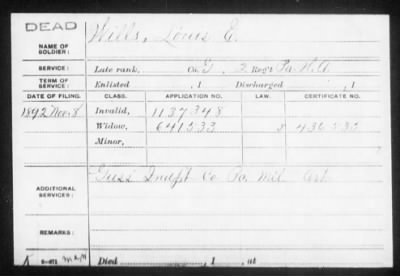 DEAD
NAME OF SOLDIER: Wills, Louis E.
SERVICE: Late rank, Co. G, 2 Reg't Pa. H. A.
TERM OF SERVICE: Enlisted , 1 Discharged , 1
DATE OF FILING. CLASS. APPLICATION NO. LAW. CERTIFICATE NO.
1892 Nov. 8 Invalid, 1137348
Widow, 641533 436535
Minor,
ADDITIONAL SERVICES: Indpt Co Pa. Mil Art
REMARKS:
Died , 1 , at